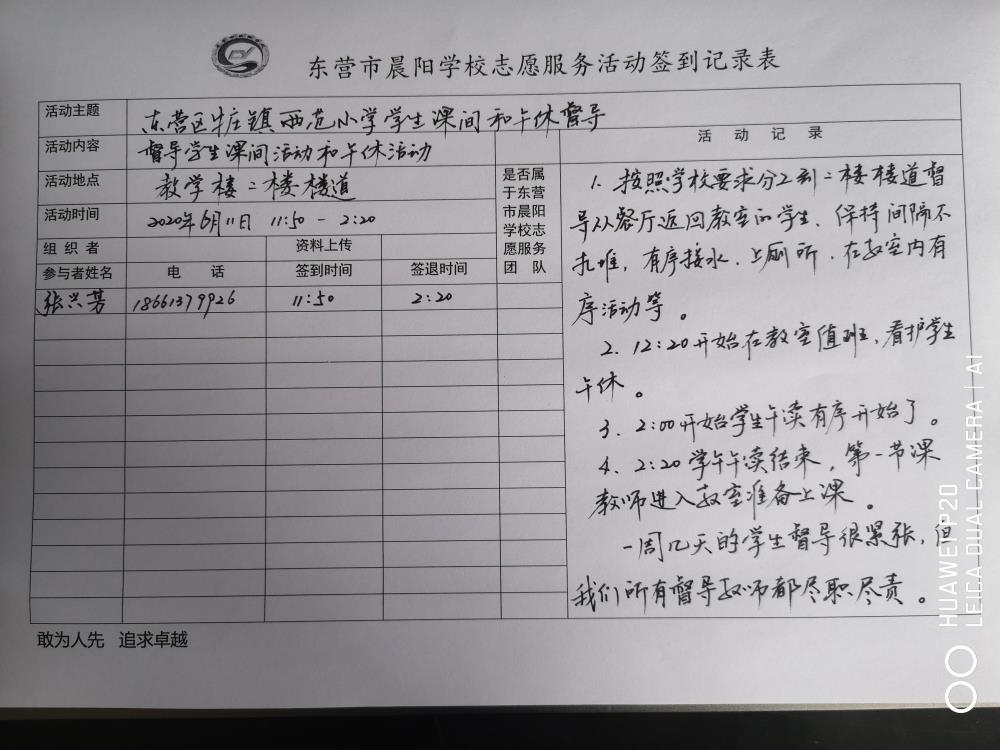 东营市晨阳学校志愿服务活动签到记录表
活动主题 东营区牛庄镇西范小学学生课间和午休督导
活动内容 督导学生课间活动和午休活动
活动地点 教学楼二楼楼道
活动时间 2020年6月11日 11:50 - 2:20
组织者 资料上传
参与者姓名 电话 签到时间 签退时间
张兴芳 18661379926 11:50 2:20
是否属
于东营
市晨阳
学校志
愿服务
团队
活动记录
1. 按照学校要求分工到二楼楼道督
导从餐厅返回教室的学生、保持间隔不
扎堆,有序接水、上厕所、在教室内有
序活动等。
2. 12:20开始在教室值班,看护学生
午休。
3. 2:00开始学生午读有序开始了。
4. 2:20学午午读结束,第一节课
教师进入教室准备上课。
一周几天的学生督导很紧张,但
我们所有督导教师都尽职尽责。
敢为人先 追求卓越
HUAWEI P20
LEICA DUAL CAMERA | AI